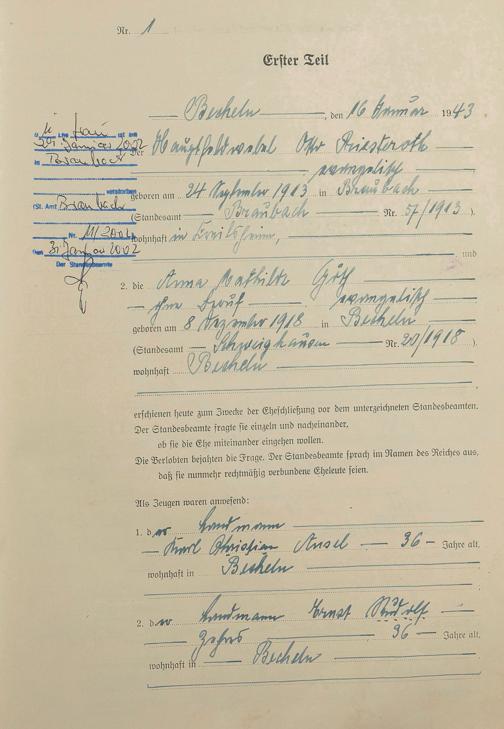 Nr. 1
Erster Teil
Becheln, den 16 Januar 1943
Der Hauptfeldwebel Otto Friesteroth
evangelisch
geboren am 24 September 1913 in Braubach
(Standesamt Braubach Nr. 57/1913)
wohnhaft in
und
2. die Anna Mathilde Göth
ohne Beruf evangelisch
geboren am 8 Dezember 1918 in Becheln
(Standesamt Schweighausen Nr. 20/1918)
wohnhaft Becheln
erschienen heute zum Zwecke der Eheschließung vor dem unterzeichneten Standesbeamten.
Der Standesbeamte fragte sie einzeln und nacheinander,
ob sie die Ehe miteinander eingehen wollen.
Die Verlobten bejahten die Frage. Der Standesbeamte sprach im Namen des Reiches aus,
daß sie nunmehr rechtmäßig verbundene Eheleute seien.
Als Zeugen waren anwesend:
1. der Landmann
Karl Christian Ansel 36 Jahre alt,
wohnhaft in Becheln
2. der Landmann Ernst Rudolf
36 Jahre alt,
wohnhaft in Becheln
Ehefrau ist am
29. Januar 2002
in Braubach
verstorben
(St. Amt Braubach
Nr. 11/2002
den 31. Januar 2002
Der Standesbeamte